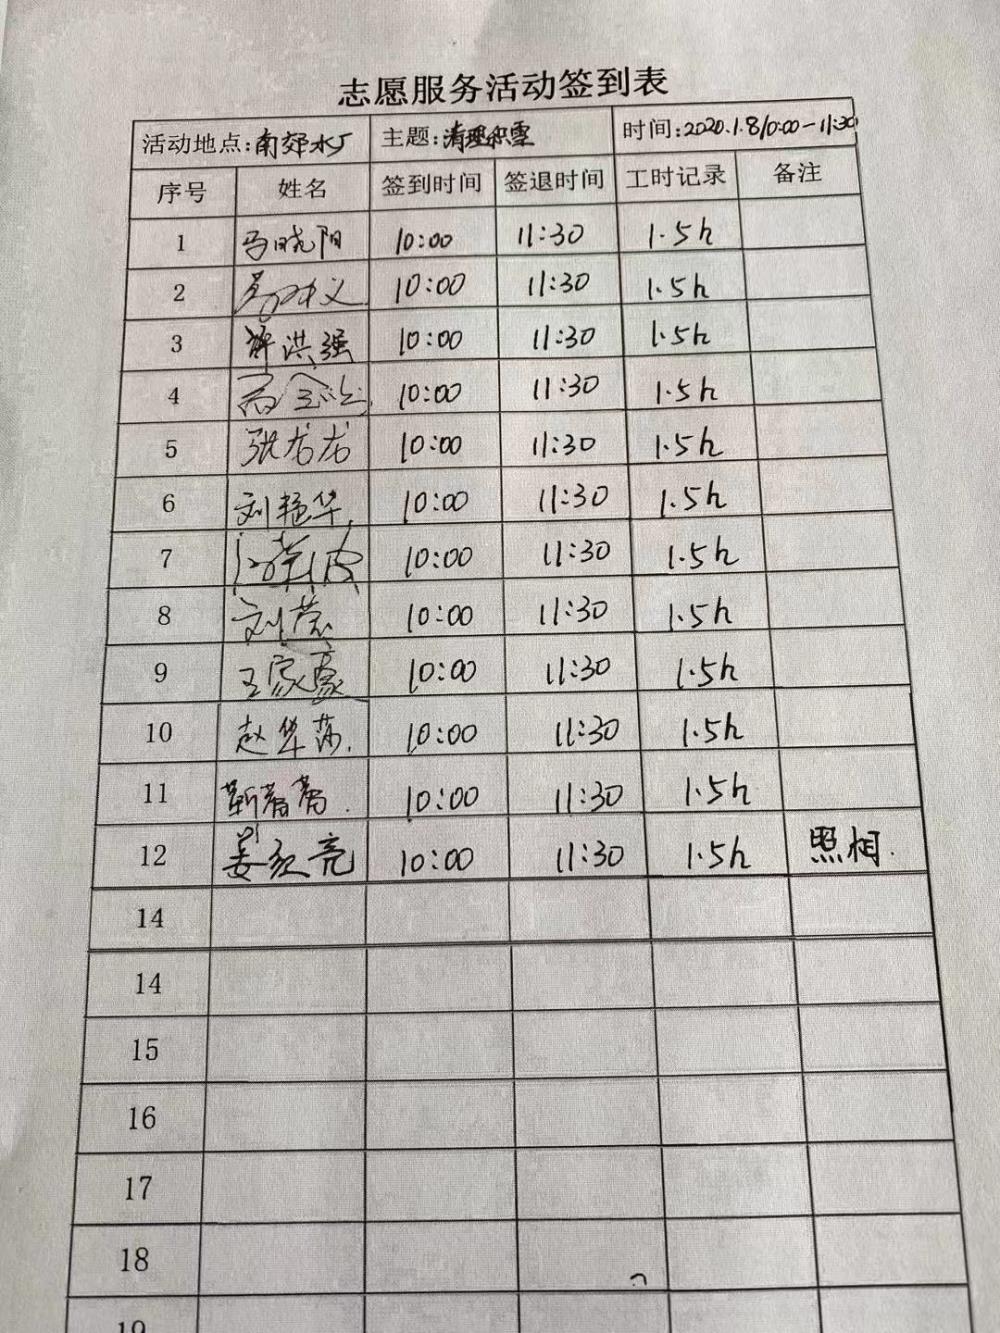 志愿服务活动签到表
活动地点:南郊水厂 主题:清理积雪 时间:2020.1.8/10:00-11:30
序号 姓名 签到时间 签退时间 工时记录 备注
1 马晓阳 10:00 11:30 1.5h
2 10:00 11:30 1.5h
3 许洪强 10:00 11:30 1.5h
4 10:00 11:30 1.5h
5 张龙龙 10:00 11:30 1.5h
6 刘艳华 10:00 11:30 1.5h
7 10:00 11:30 1.5h
8 刘莹 10:00 11:30 1.5h
9 王家豪 10:00 11:30 1.5h
10 赵华莎. 10:00 11:30 1.5h
11 靳蕾蕾. 10:00 11:30 1.5h
12 姜 亮 10:00 11:30 1.5h 照相.
14
14
15
16
17
18
19